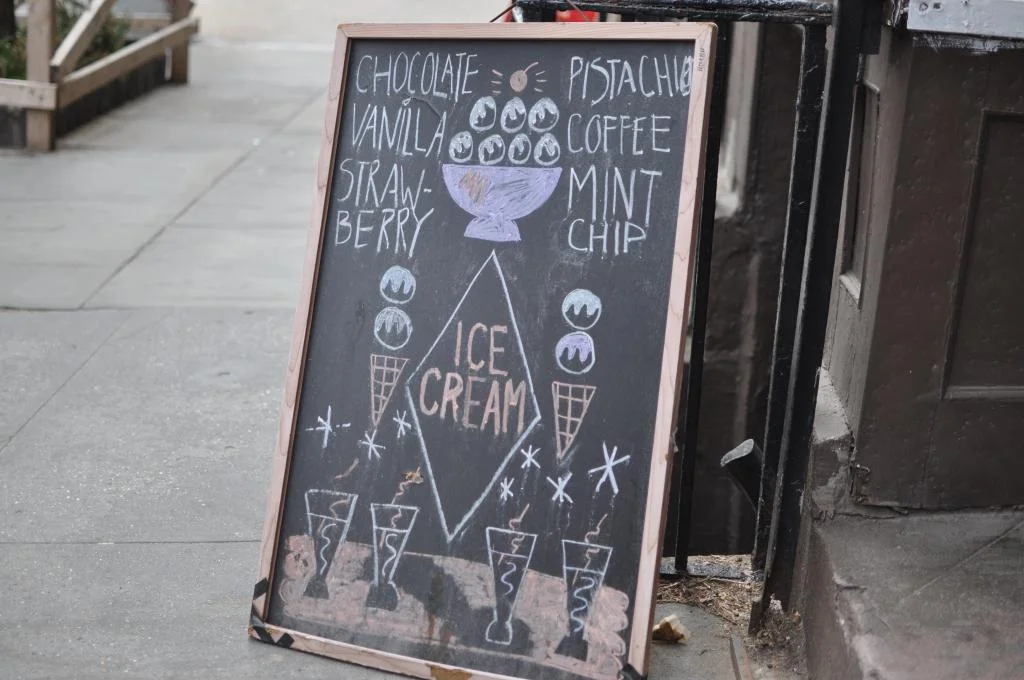 CHOCOLATE
VANILLA
STRAW-
BERRY
PISTACHIO
COFFEE
MINT
CHIP
ICE
CREAM